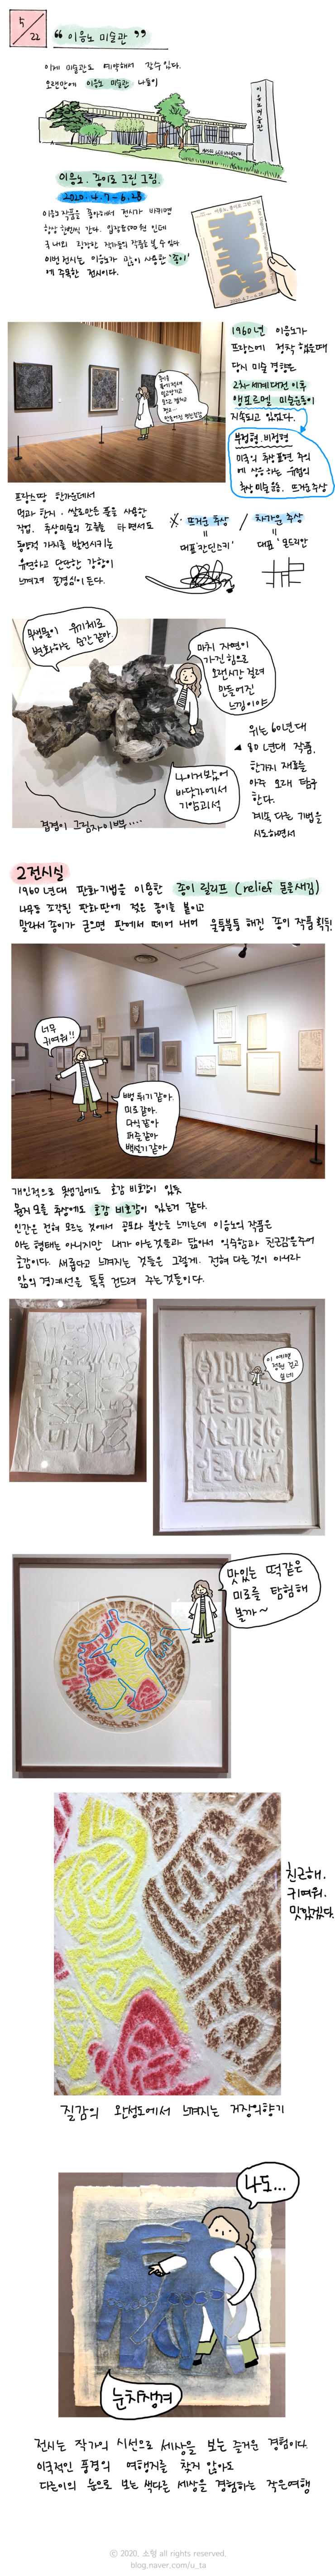 5/22
"이응노 미술관"
이제 미술관도 예약해서 갈수 있다.
오랜만에 이응노 미술관 나들이
이응노미술관
이응노, 종이로 그린 그림.
2020. 4. 7 - 6. 28
이응노 작품을 좋아해서 전시가 바뀌면
항상 한번씩 간다. 입장료 500원 인데
국내외 진귀한 작가들의 작품을 볼 수 있다
이번 전시는 이응노가 많이 사용한 '종이'
에 주목한 전시이다.
1960년 이응노가
프랑스에 정착 했을때
당시 미술 경향은
2차 세계대전 이후
앵포르멜 미술운동이
지속되고 있었다.
부정형. 비정형
미국의 추상표현 주의
에 상응하는 유럽의
추상미술운동, 뜨거운추상
프랑스땅 한가운데서
먹과 한지, 쌀로만든 풀을 사용한
작업. 추상미술의 조류를 타면서도
동양적 가치를 발전시키는
유연하고 단단한 강함이
느껴져 존경심이 든다.
※ 뜨거운 추상 / 차가운 추상
대표 '칸딘스키' 대표 '몬드리안'
무생물이 유기체로
변화하는 순간같아.
마치 자연이
가진 힘으로
오랜시간 걸려
만들어진
느낌이야
나 이거 봤어
바닷가에서
기암괴석
겹겹이 그림자 이뻐····
위는 60년대
◀ 80년대 작품.
한가지 재료를
아주 오래 탐구
한다.
계속 다른 기법을
시도하면서
2전시실
1960년대 판화 기법을 이용한 종이 릴리프 (relief 돋을새김)
나무등 조각된 판화 판에 젖은 종이를 붙이고
말라서 종이가 굳으면 판에서 떼어 내어 울퉁불퉁 해진 종이 작품 획득!
너무
귀여워!!
뻥튀기 같아.
미로같아.
다식같아
퍼즐같아
백설기 같아
개인적으로 못생김에도 호감 비호감이 있듯
뭔지 모를 추상에도 호감 비호감이 있는거 같다.
인간은 전혀 모르는 것에서 공포와 불안을 느끼는데 이응노의 작품은
아는 형태는 아니지만 내가 아는것들과 닮아서 익숙함과 친근감을주어
호감이다. 새롭다고 느껴지는 것들은 그렇게. 전혀 다른것이 아니라
앎의 경계선을 톡톡 건드려 주는것들이다.
이 예쁜
정원 걷고
싶네
맛있는 떡같은
미로를 탐험해
볼까~
친근해.
귀여워.
맛있겠다.
질감의 완성도에서 느껴지는 거장의향기
나도...
눈치챙겨
전시는 작가의 시선으로 세상을 보는 즐거운 경험이다.
이국적인 풍경의 여행지를 찾지 않아도
다른이의 눈으로 보는 색다른 세상을 경험하는 작은여행
ⓒ 2020. 소명 all rights reserved.
blog.naver.com/u_ta